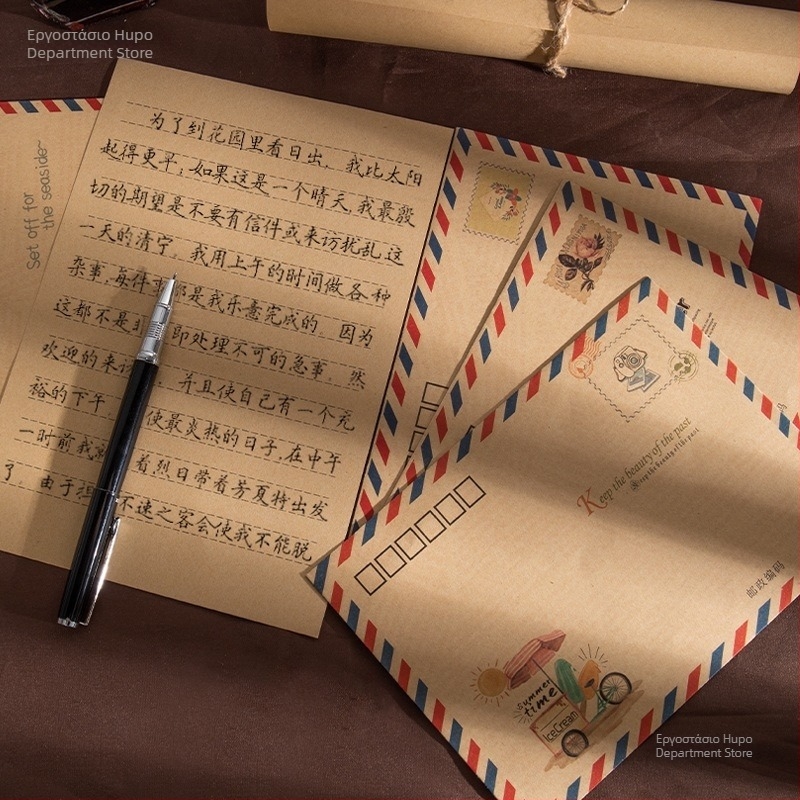 Εργοστάσιο Hupo
Department Store
Set off for
the seaside~
为了到花园里看日出，我比太阳
起得更早；如果这是一个晴天，我最殷
切的期望是不要有信件或来访扰乱这
一天的清宁。我用上午的时间做各种
杂事，每件 都是我乐意完成的，因为
这都不是 即处理不可的急事，然
欢迎的来访 并且使自己有一个充
裕的下午， 使最炎热的日子，在中午
一时前我 着烈日带着芳夏特出发
了。由于 不速之客会使我不能脱
Keep the beauty of the past
Keep the beauty of the past
邮政编码
Summer
time
IceCream
Εργοστάσιο Hupo
Department Store